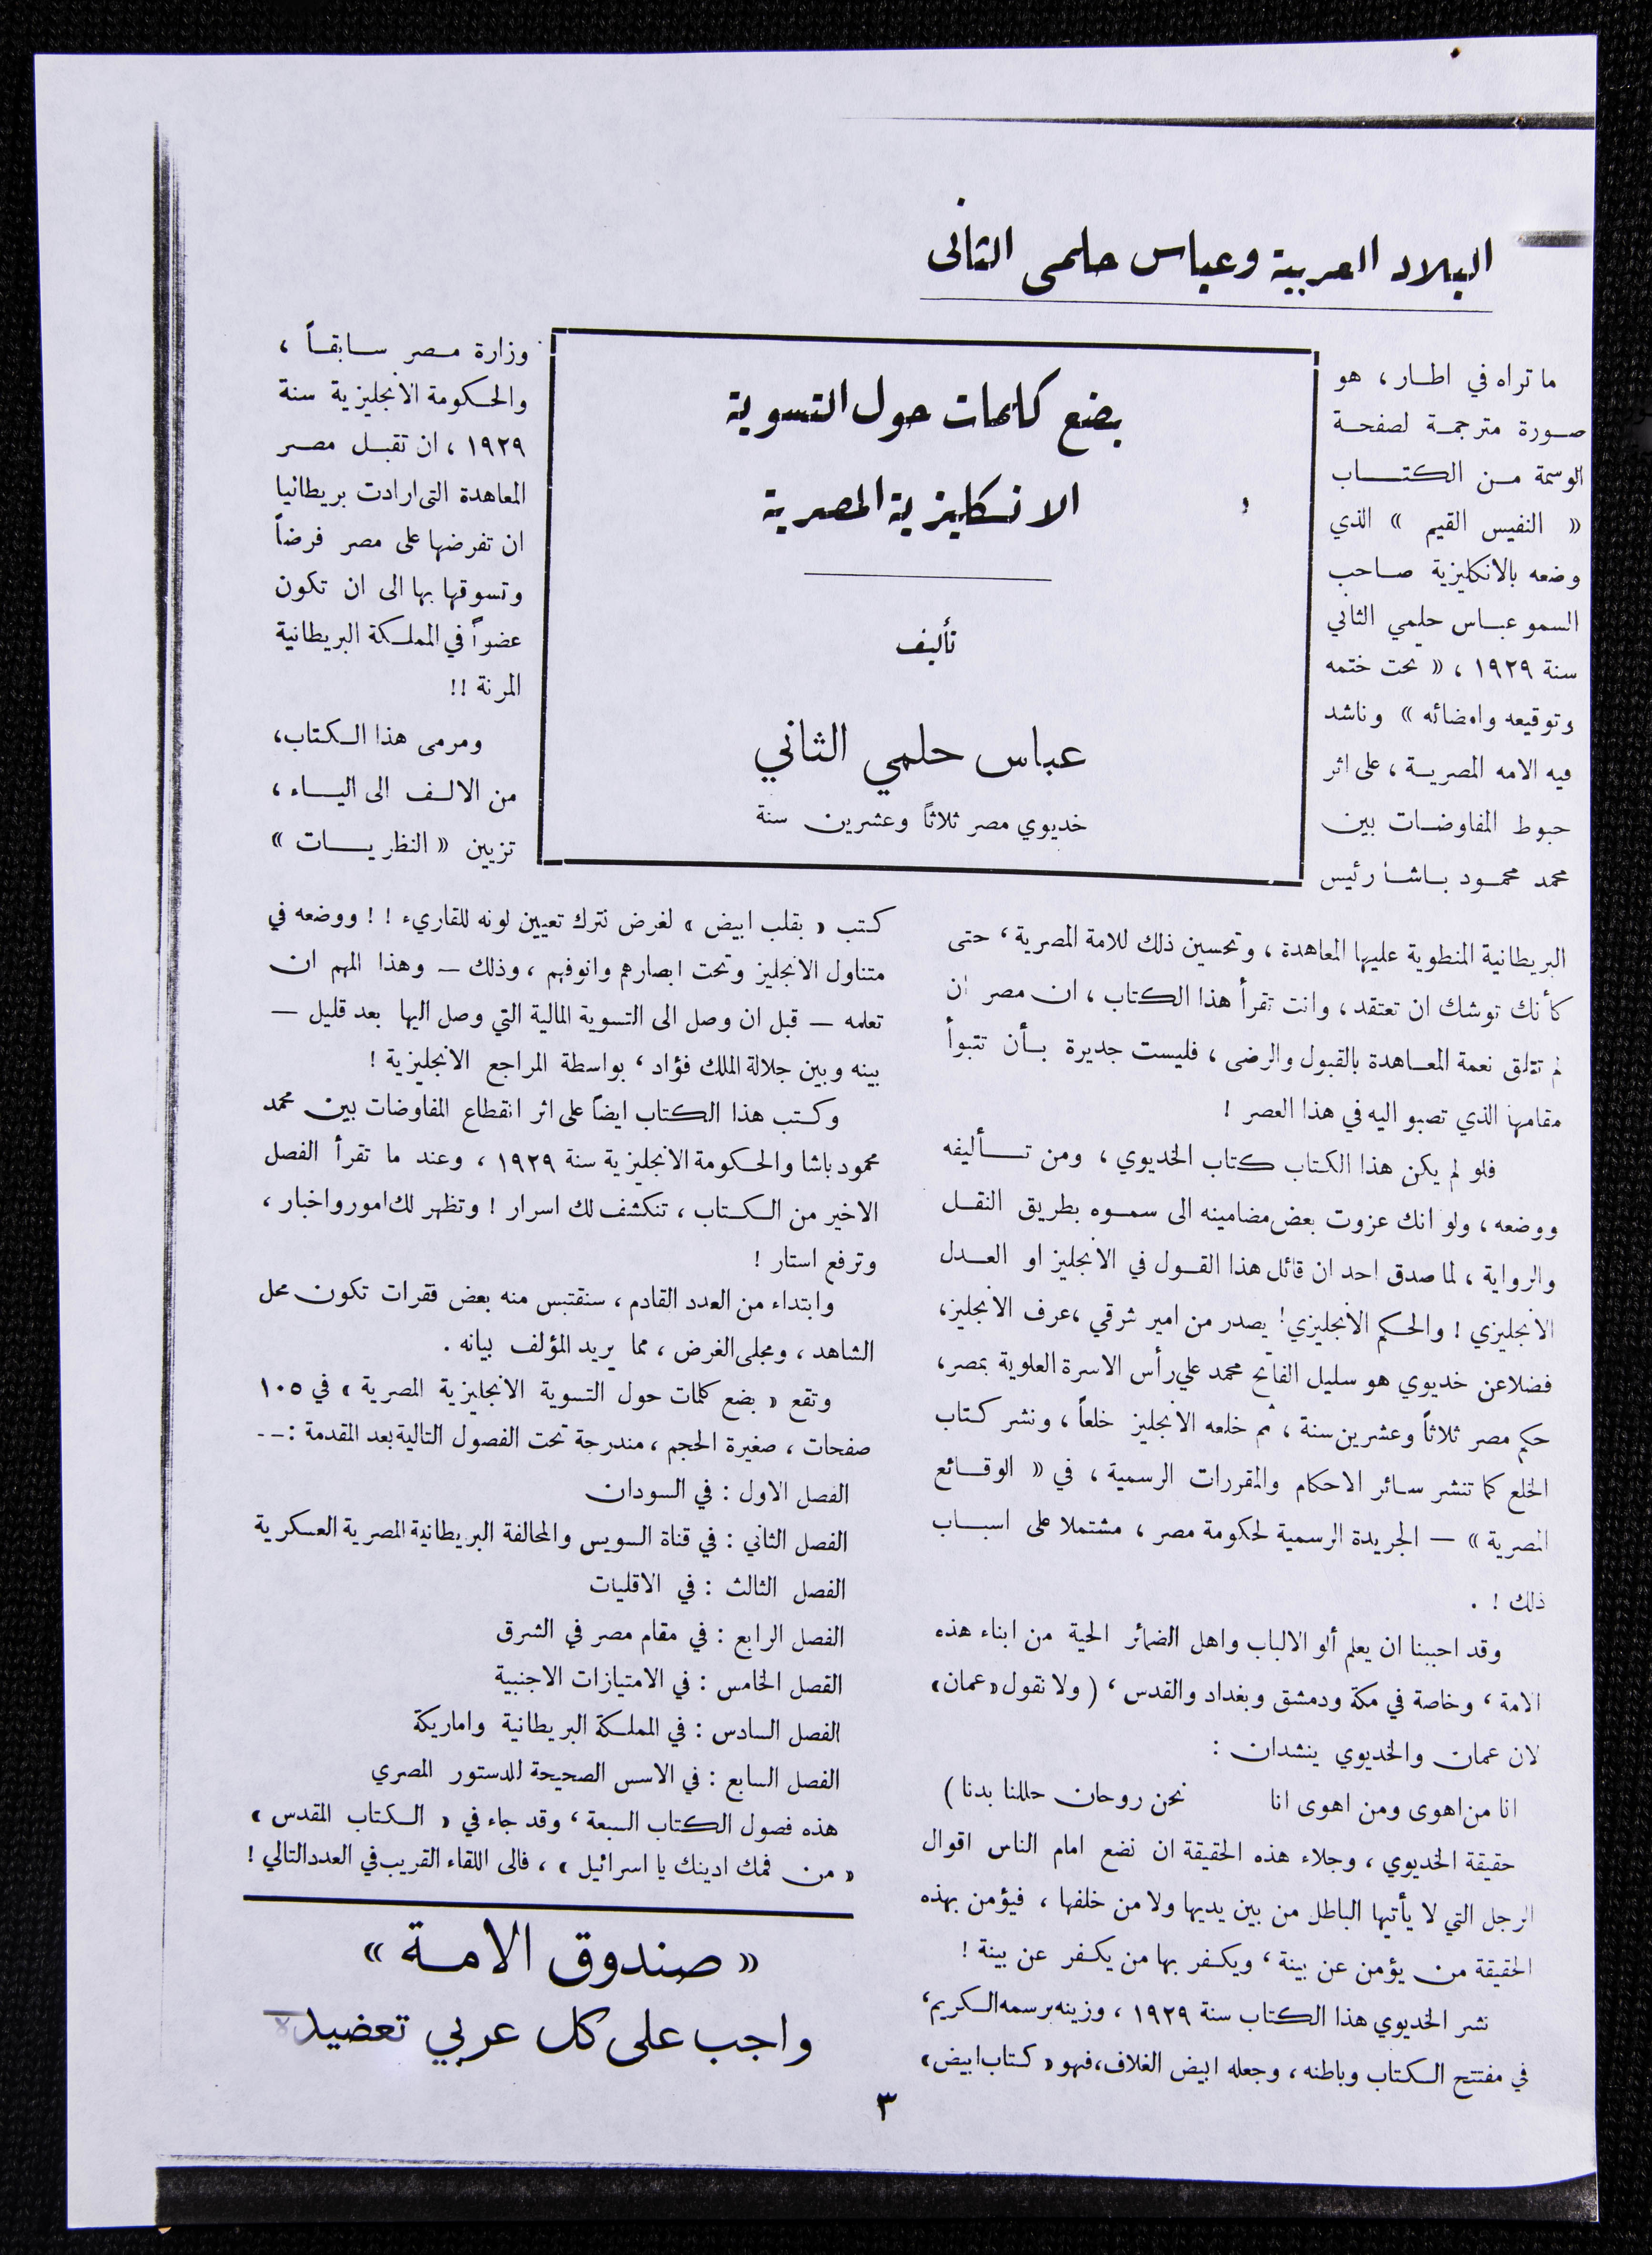 البلاد العربية وعباس حلمى الثانى
ما تراه في اطار ، هو
صورة مترجمة لصفحة
الوسمة من الكتاب
« النفيس القيم » الذي
وضعه بالانكليزية صاحب
السمو عباس حلمي الثاني
سنة ١٩٢٩ ، « تحت ختمه
وتوقيعه وامضائه » وناشد
فيه الامه المصرية ، على اثر
حبوط المفاوضات بين
محمد محمود باشا رئيس
بضع كلمات حول التسوية
الانكليزية المصرية
تأليف
عباس حلمي الثاني
خديوي مصر ثلاثاً وعشرين سنة
وزارة مصر سابقاً ،
والحكومة الانجليزية سنة
١٩٢٩ ، ان تقبل مصر
المعاهدة التى ارادت بريطانيا
ان تفرضها على مصر فرضاً
وتسوقها بها الى ان تكون
عضواً في المملكة البريطانية
المرنة !!
ومرمى هذا الكتاب،
من الالف الى الياء ،
تزيين « النظريات »
البريطانية المنطوية عليها المعاهدة ، وتحسين ذلك للامة المصرية ، حتى
كأنك توشك ان تعتقد ، وانت تقرأ هذا الكتاب ، ان مصر ان
لم تتلق نعمة المعاهدة بالقبول والرضى ، فليست جديرة بأن تتبوأ
مقامها الذي تصبو اليه في هذا العصر !
فلو لم يكن هذا الكتاب كتاب الخديوي ، ومن تأليفه
ووضعه ، ولو انك عزوت بعض مضامينه الى سموه بطريق النقل
والرواية ، لما صدق احد ان قائل هذا القول في الانجليز او العدل
الانجليزي ! والحكم الانجليزي! يصدر من امير شرقي ،عرف الانجليز،
فضلاعن خديوي هو سليل الفاتح محمد علي رأس الاسرة العلوية بمصر،
حكم مصر ثلاثاً وعشرين سنة ، ثم خلعه الانجليز خلعاً ، ونشر كتاب
الخلع كما تنشر سائر الاحكام والمقررات الرسمية ، في « الوقائع
المصرية » — الجريدة الرسمية لحكومة مصر ، مشتملا على اسباب
ذلك ! .
وقد احببنا ان يعلم ألو الالباب واهل الضمائر الحية من ابناء هذه
الامة ، وخاصة في مكة ودمشق وبغداد والقدس ، ( ولا نقول «عمان»
لان عمان والخديوي ينشدان :
انا من اهوى ومن اهوى انا نحن روحان حللنا بدنا )
حقيقة الخديوي ، وجلاء هذه الحقيقة ان نضع امام الناس اقوال
الرجل التي لا يأتيها الباطل من بين يديها ولا من خلفها ، فيؤمن بهذه
الحقيقة من يؤمن عن بينة ، ويكفر بها من يكفر عن بينة !
نشر الخديوي هذا الكتاب سنة ١٩٢٩ ، وزينه برسمه الكريم ،
في مفتتح الكتاب وباطنه ، وجعله ابيض الغلاف، فهو « كتاب ابيض »
كتب « بقلب ابيض » لغرض نترك تعيين لونه للقاريء ! ! ووضعه في
متناول الانجليز وتحت ابصارهم وانوفهم ، وذلك — وهذا المهم ان
تعلمه — قبل ان وصل الى التسوية المالية التي وصل اليها بعد قليل —
بينه وبين جلالة الملك فؤاد ، بواسطة المراجع الانجليزية !
وكتب هذا الكتاب ايضاً على اثر انقطاع المفاوضات بين محمد
محمود باشا والحكومة الانجليزية سنة ١٩٢٩ ، وعند ما تقرأ الفصل
الاخير من الكتاب ، تنكشف لك اسرار ! وتظهر لك امور واخبار ،
وترفع استار !
وابتداء من العدد القادم ، سنقتبس منه بعض فقرات تكون محل
الشاهد ، ومجلى الغرض ، مما يريد المؤلف بيانه .
وتقع « بضع كلمات حول التسوية الانجليزية المصرية » في ١٠٥
صفحات ، صغيرة الحجم ، مندرجة تحت الفصول التالية بعد المقدمة :--
الفصل الاول : في السودان
الفصل الثاني : في قناة السويس والمحالفة البريطانية المصرية العسكرية
الفصل الثالث : في الاقليات
الفصل الرابع : في مقام مصر في الشرق
الفصل الخامس : في الامتيازات الاجنبية
الفصل السادس : في المملكة البريطانية واماريكة
الفصل السابع : في الاسس الصحيحة للدستور المصري
هذه فصول الكتاب السبعة ، وقد جاء في « الكتاب المقدس »
« من فمك ادينك يا اسرائيل » ، فالى اللقاء القريب في العدد التالي !
« صندوق الامة »
واجب على كل عربي تعضيده
٣